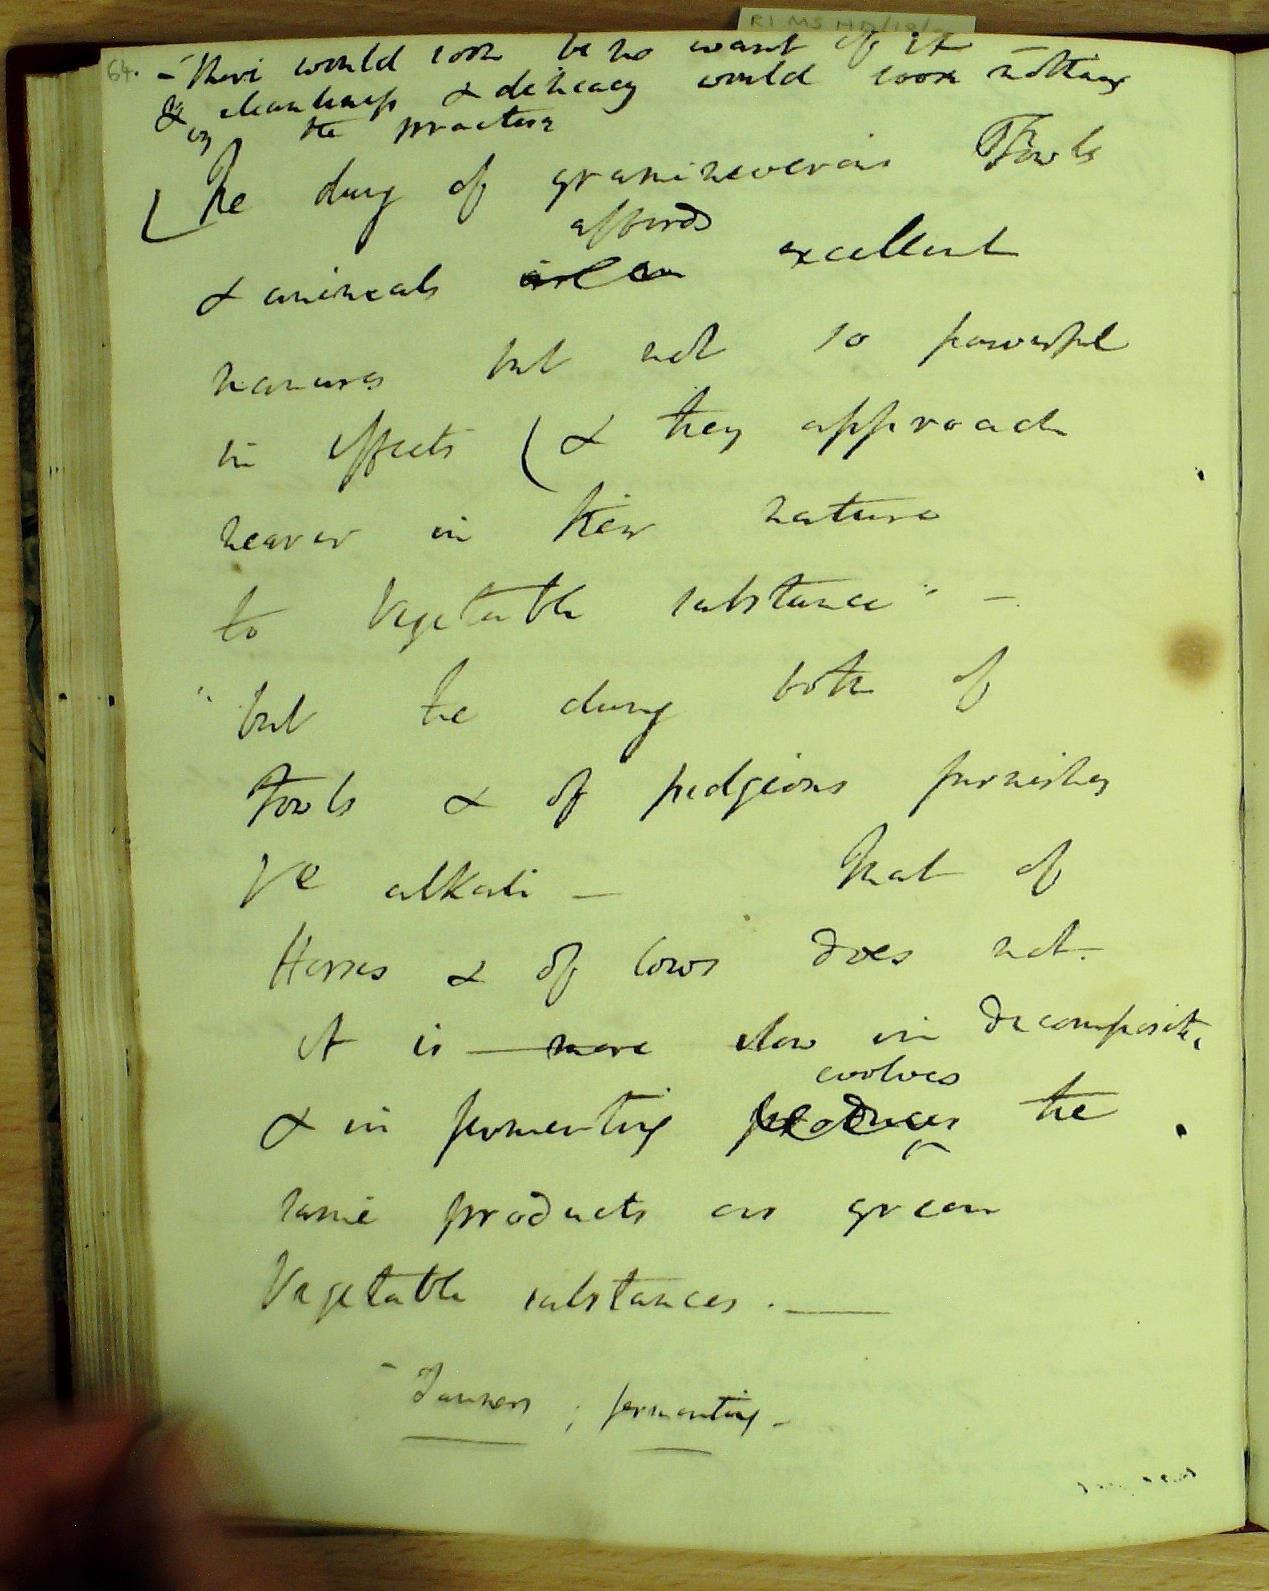 RI MS HD/19/
64. - There would soon be no want of it
& cleanliness & delicacy would soon nothing
in the practice
The dung of graminiverous Fowls
affords
& animals excellent
manures but not so powerful
in effects ( & they approach
nearer in their nature
to Vegetable substance" -
"but the dung both of
Fowls & of pidgeons furnishes
Ve alkali - That of
Horses & of Cows does not -
it is more slow in decomposit.
evolves
& in fermenting produces the
same products as green
Vegetable substances. —
- Tanners ; fermenting -